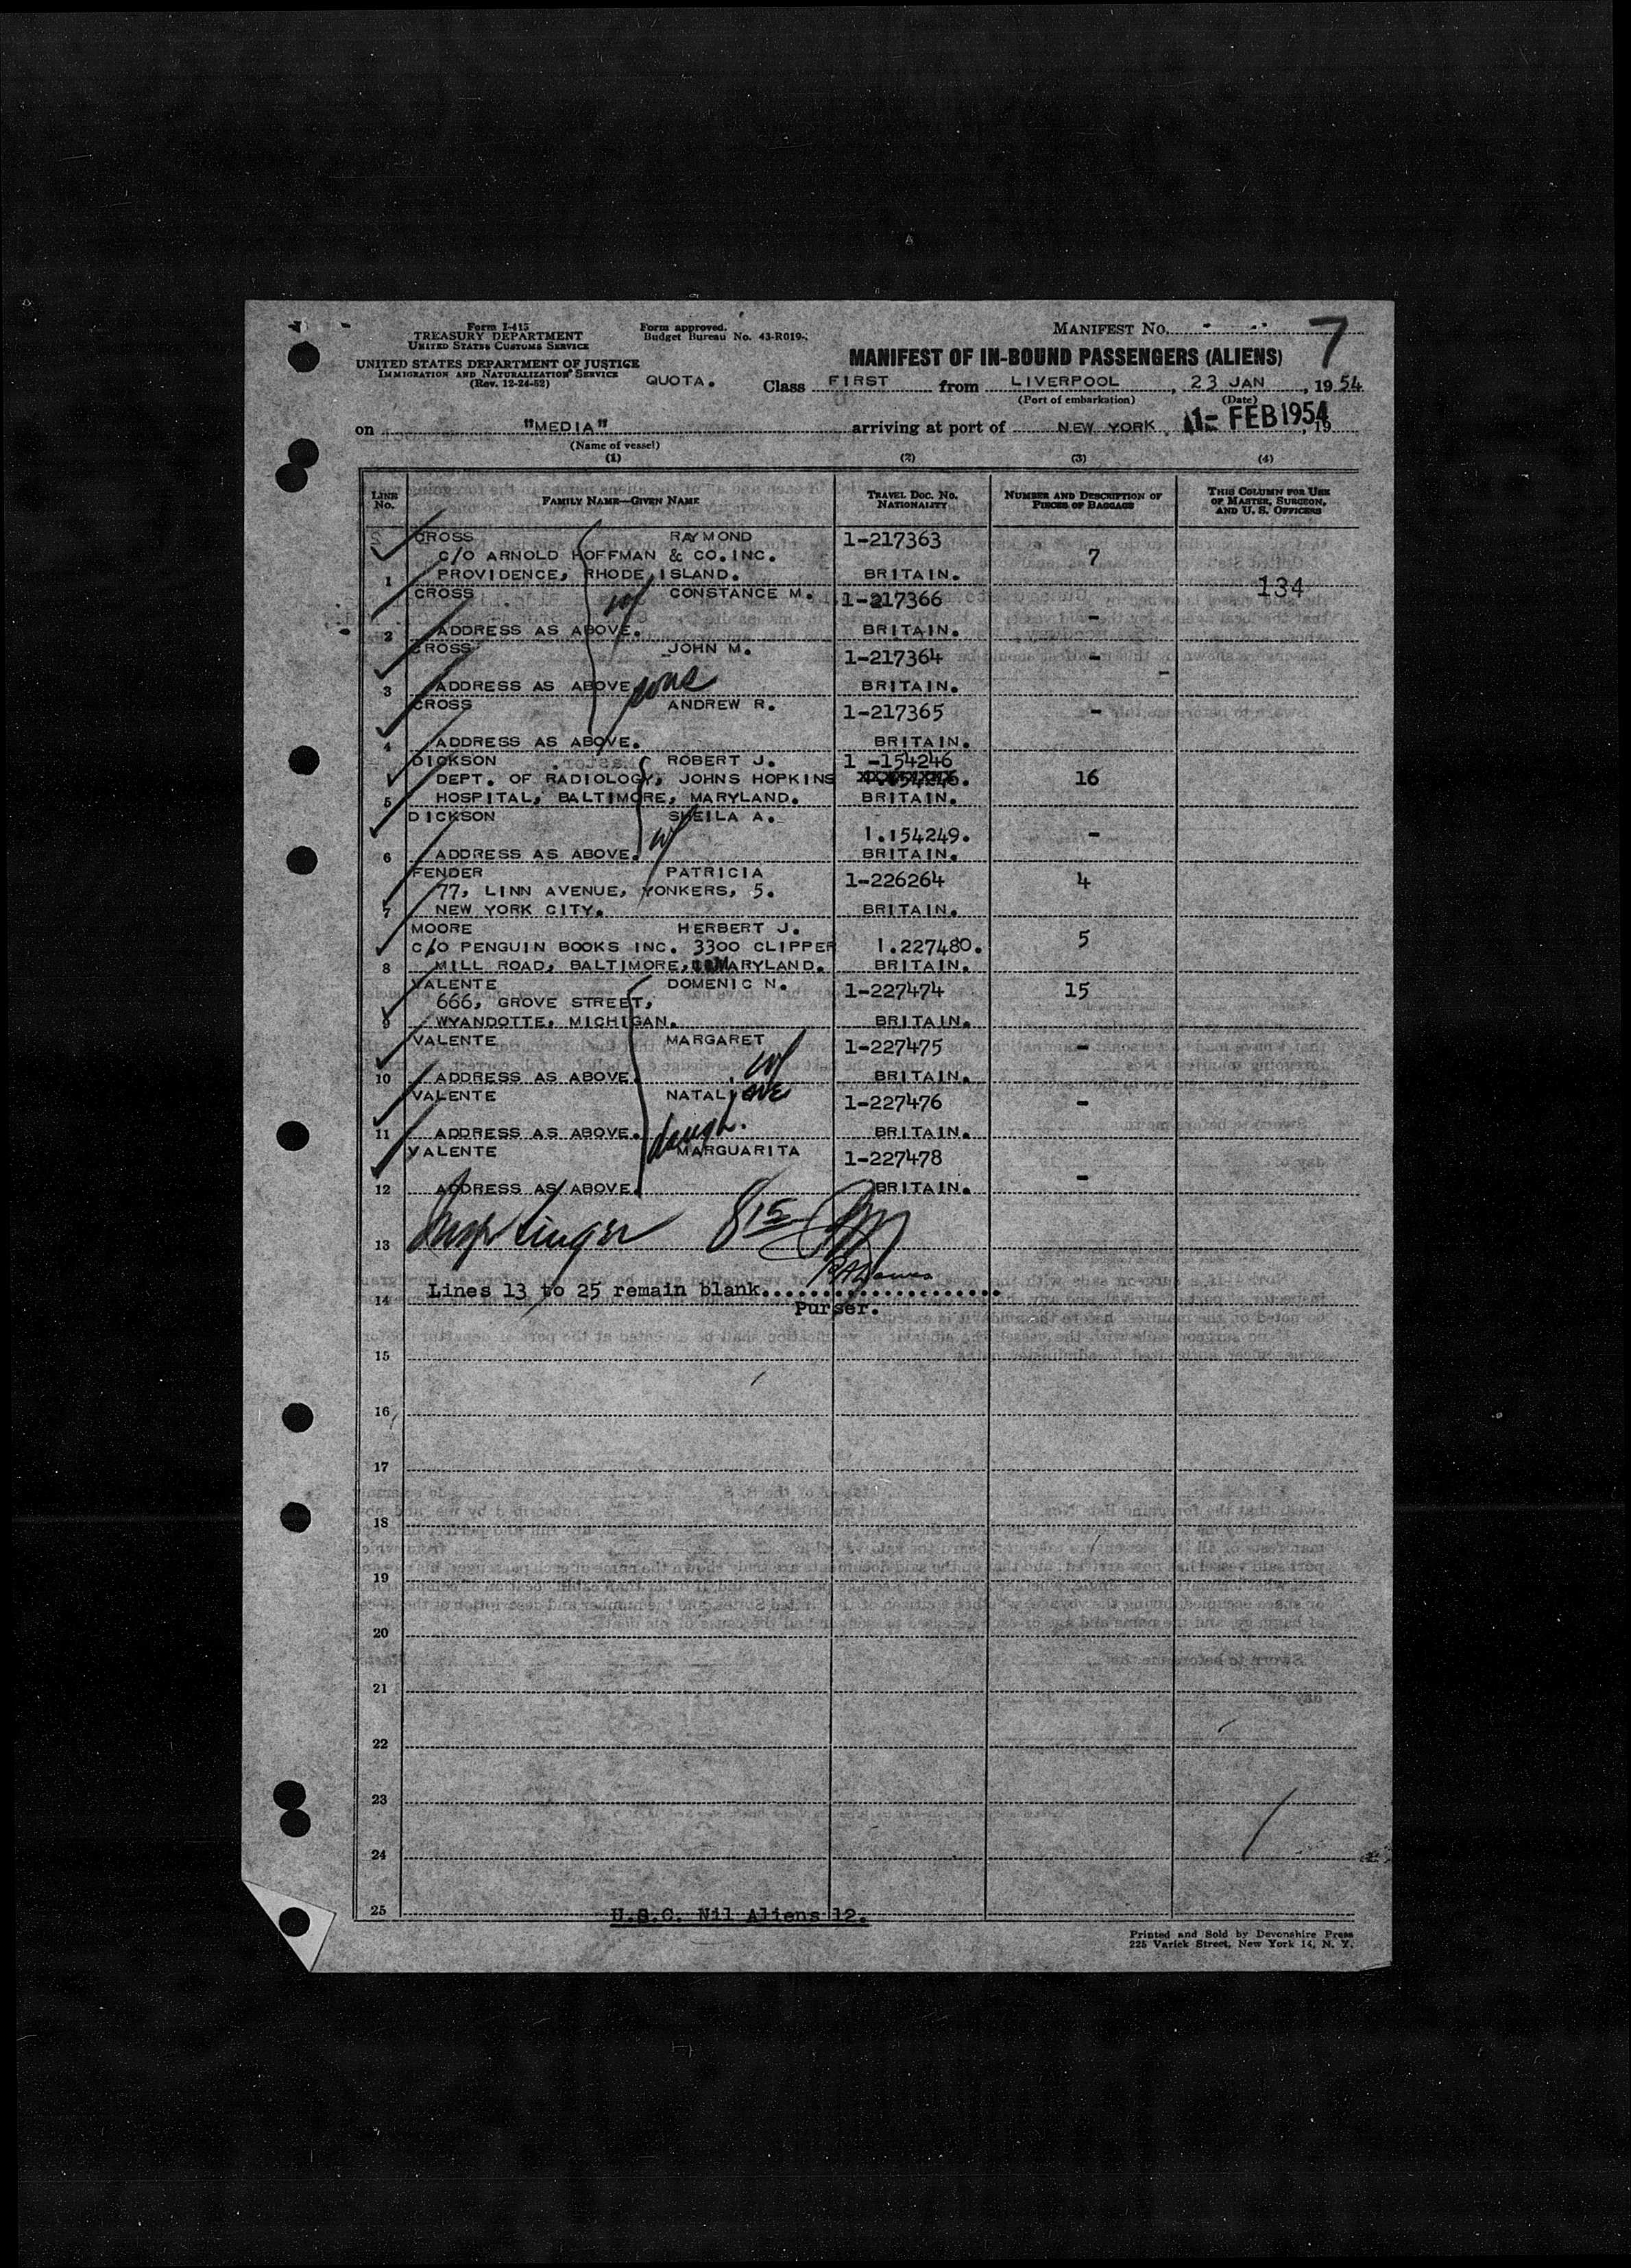 Form I-415
TREASURY DEPARTMENT
UNITED STATES CUSTOMS SERVICE
UNITED STATES DEPARTMENT OF JUSTICE
IMMIGRATION AND NATURALIZATION SERVICE
(Rev. 12-24-52)
Form approved.
Budget Bureau No. 43-R019-
MANIFEST NO. 7
MANIFEST OF IN-BOUND PASSENGERS (ALIENS)
QUOTA. Class FIRST from LIVERPOOL, 23 JAN, 1954
(Port of embarkation) (Date)
on "MEDIA" arriving at port of NEW YORK, 1- FEB 1954, 19
(Name of vessel)
(1) (2) (3) (4)
LINE NO. FAMILY NAME—GIVEN NAME TRAVEL DOC. NO. NATIONALITY NUMBER AND DESCRIPTION OF PIECES OF BAGGAGE THIS COLUMN FOR USE OF MASTER, SURGEON, AND U. S. OFFICERS
CROSS RAYMOND 1-217363
C/O ARNOLD HOFFMAN & CO. INC. 7
1 PROVIDENCE, RHODE ISLAND. BRITAIN. 134
CROSS CONSTANCE M. 1-217366
w/ -
2 ADDRESS AS ABOVE. BRITAIN.
CROSS JOHN M. 1-217364 -
3 ADDRESS AS ABOVE BRITAIN.
sons
CROSS ANDREW R. 1-217365 -
4 ADDRESS AS ABOVE. BRITAIN.
DICKSON ROBERT J. 1-154246
DEPT. OF RADIOLOGY, JOHNS HOPKINS 16
5 HOSPITAL, BALTIMORE, MARYLAND. BRITAIN.
DICKSON SHEILA A.
w/ 1.154249. -
6 ADDRESS AS ABOVE. BRITAIN.
FENDER PATRICIA 1-226264 4
77, LINN AVENUE, YONKERS, 5.
7 NEW YORK CITY. BRITAIN.
MOORE HERBERT J.
C/O PENGUIN BOOKS INC. 3300 CLIPPER 1.227480. 5
8 MILL ROAD, BALTIMORE, MARYLAND. BRITAIN.
VALENTE DOMENIC N. 1-227474 15
666, GROVE STREET,
9 WYANDOTTE, MICHIGAN. BRITAIN.
VALENTE MARGARET 1-227475 -
w/
10 ADDRESS AS ABOVE. BRITAIN.
VALENTE 1-227476 -
11 ADDRESS AS ABOVE. daugh. BRITAIN.
VALENTE MARGUARITA 1-227478
12 ADDRESS AS ABOVE. BRITAIN. -
13 815
Lines 13 to 25 remain blank....................
14 Purser.
15
16
17
18
19
20
21
22
23
24
25 U.S.C. Nil Aliens 12.
Printed and Sold by Devonshire Press
225 Varick Street, New York 14, N. Y.